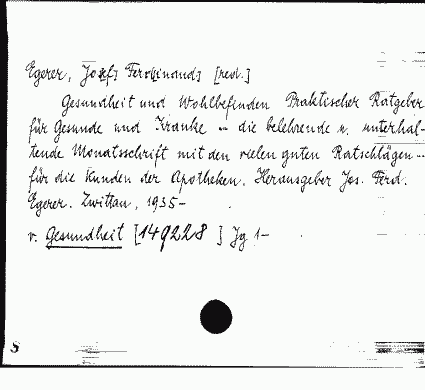 Egerer, Josef Ferdinand [red.]
Gesundheit und Wohlbefinden Praktischer Ratgeber
für Gesunde und Kranke - die belehrende u. unterhal-
tende Monatsschrift mit den vielen guten Ratschlägen -
für die Kunden der Apotheken. Herausgeber Jos. Ferd.
Egerer. Zwittau, 1935-
v. Gesundheit [149228 ] Jg 1-
S